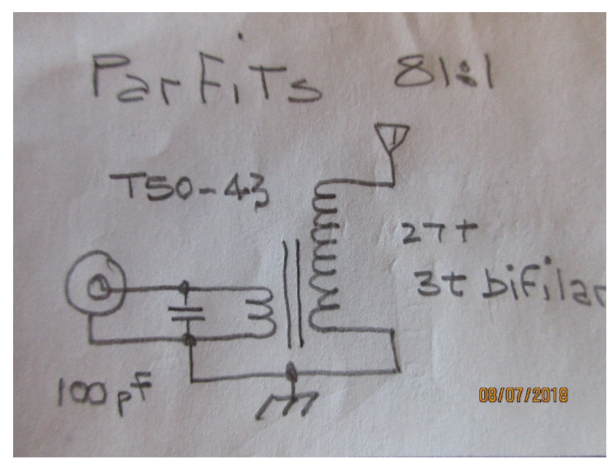 ParFiTs 81:1
T50-43
27t
3t bifilar
100pF
08/07/2018